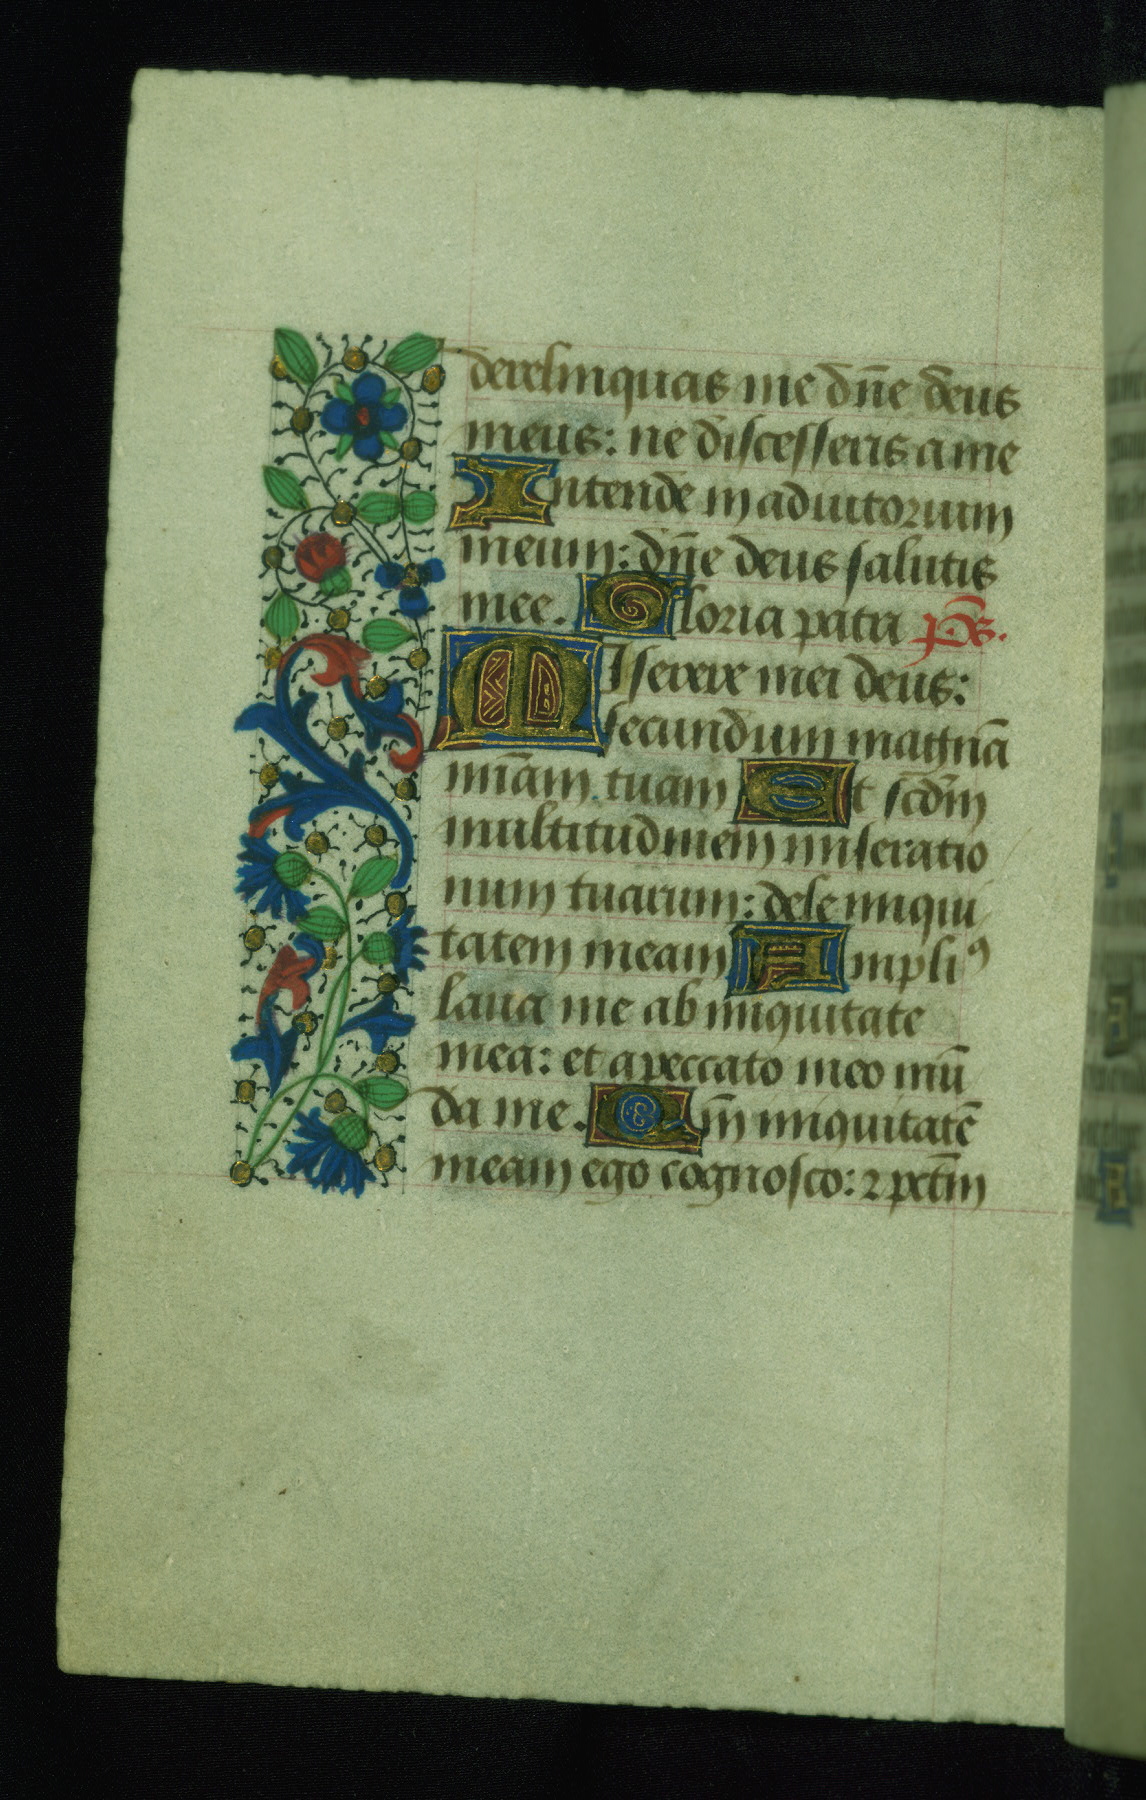 derelinquas me dn̄e deus
meus: ne discesseris a me
Intende in adiutorium
meum: dn̄e deus salutis
mee. Gloria patri p̄s.
MIserere mei deus:
secundum magnā
mīam tuam Et scd̄m
multitudinem miseratio
num tuarum: dele iniqui
tatem meam Ampliꝰ
laua me ab iniquitate
mea: et a peccato meo mū
da me. Qm̄ iniquitatē
meam ego cognosco: ⁊ pctm̄